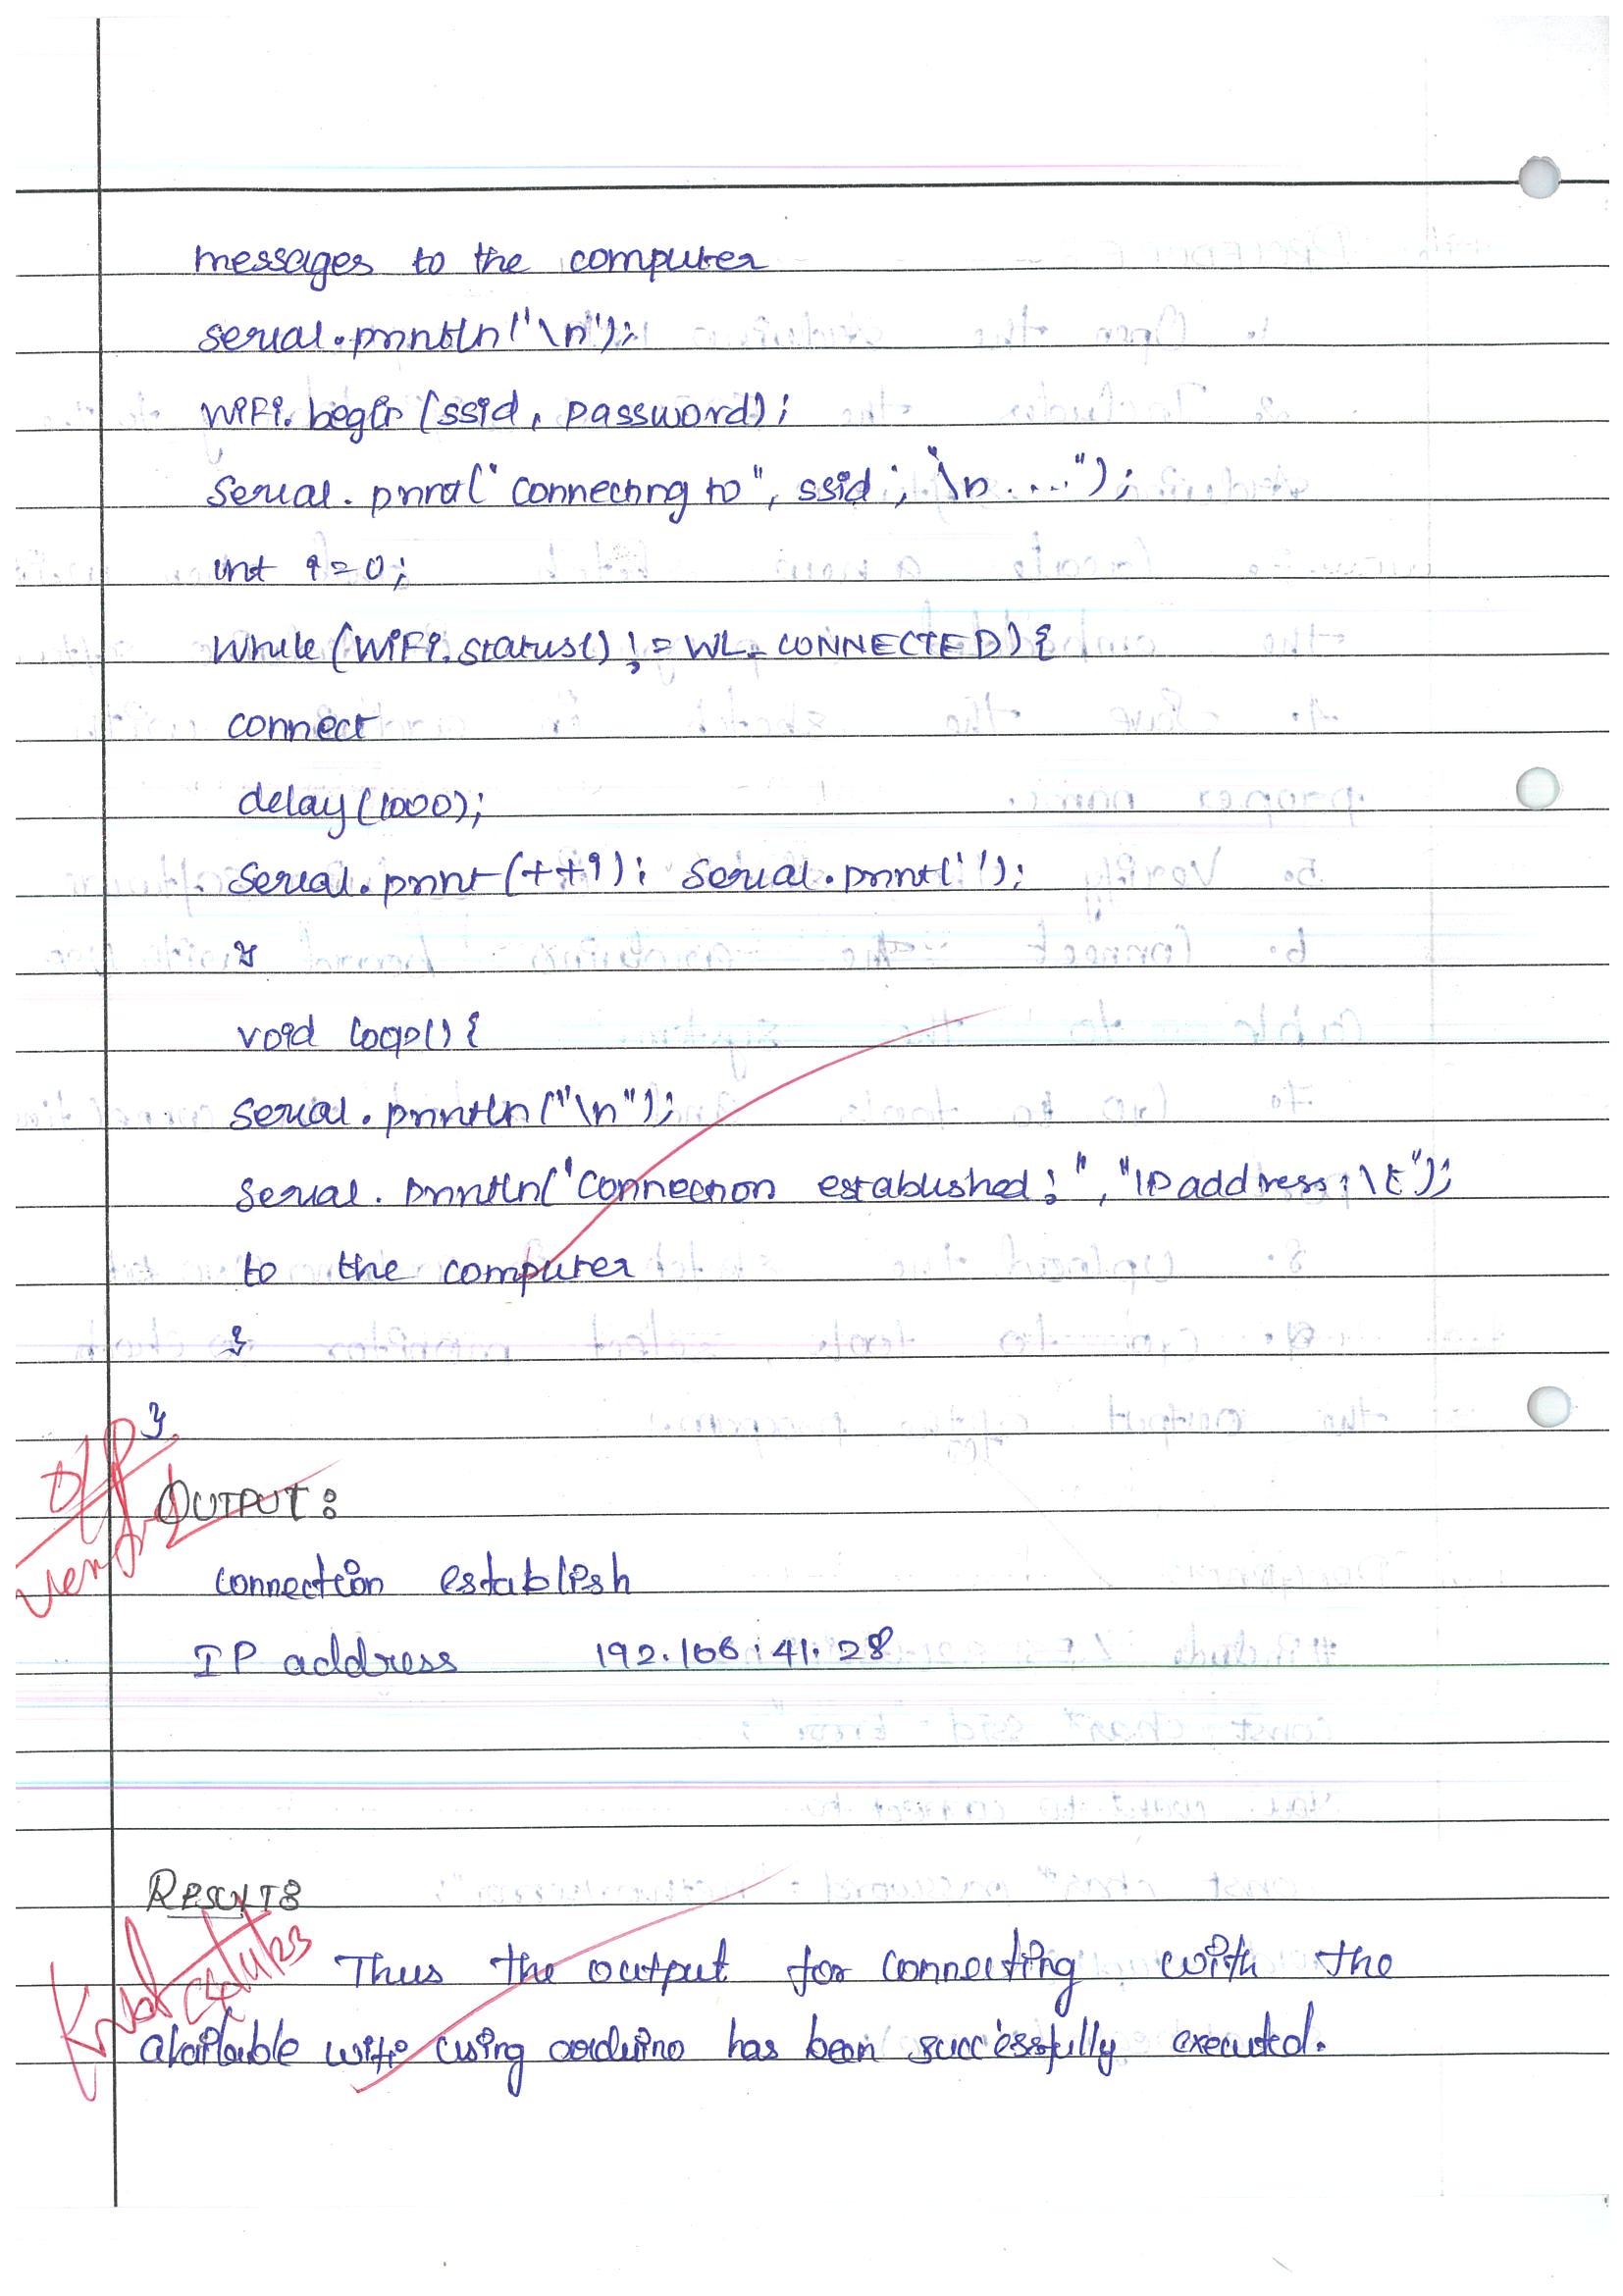 messages to the computer
serial.println('\n');
WiFi.begin (ssid, password);
Serial.print("connecting to", ssid; "\n ....");
int i=0;
while (WiFi.status() != WL_CONNECTED) {
connect
delay(1000);
Serial.print(++i); Serial.print(' ');
}
void loop() {
Serial.println("\n");
serial.println("Connection established!", "IP address:\t");
to the computer
}
}
O/P
verified
OUTPUT:
connection establish
IP address 192.166.41.28
RESULT:
Thus the output for connecting with the
available wifi using arduino has been successfully executed.